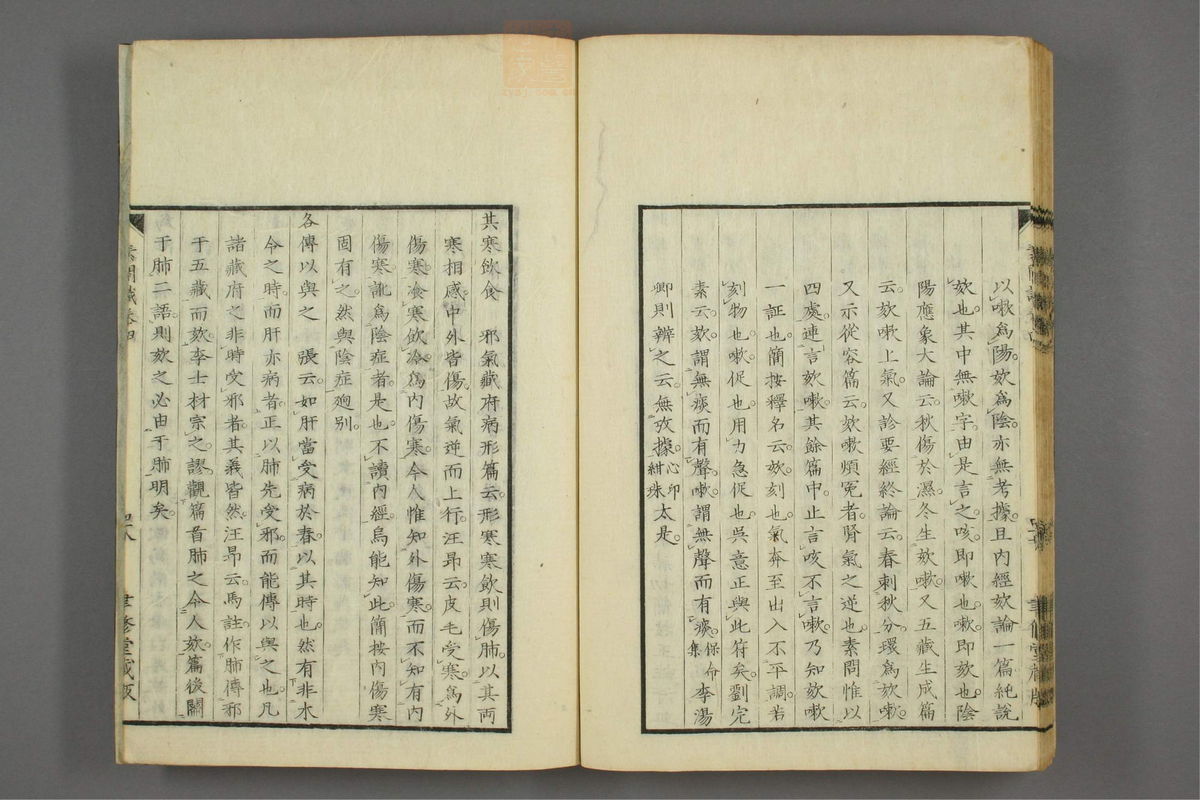 以嗽爲陽欬爲陰亦無考據且內經欬論一篇純說
欬也其中無嗽字由是言之咳即嗽也嗽即欬也陰
陽應象大論云秋傷於濕冬生欬嗽又五藏生成篇
云欬嗽上氣又診要經終論云春刺秋分環爲欬嗽
又示從容篇云欬嗽煩冤者腎氣之逆也素問惟以
四處連言欬嗽其餘篇中止言咳不言嗽乃知欬嗽
一証也簡按釋名云欬刻也氣奔至出入不平調若
刻物也嗽促也用力急促也吳意正與此符矣劉完
素云欬謂無痰而有聲嗽謂無聲而有痰保命集李湯
卿則辨之云無攷據心印紺珠太是
其寒飲食 邪氣藏府病形篇云形寒寒飲則傷肺以其兩
寒相感中外皆傷故氣逆而上行汪昂云皮毛受寒爲外
傷寒飡寒飲冷爲內傷寒今人惟知外傷寒而不知有內
傷寒訛爲陰症者是也不讀內經烏能知此簡按內傷寒
固有之然與陰症迥別
各傳以與之 張云如肝當受病於春以其時也然有非木
令之時而肝亦病者正以肺先受邪而能傳以與之也凡
諸藏府之非時受邪者其義皆然汪昂云馬註作肺傳邪
于五藏而欬李士材宗之謬觀篇首肺之令人欬篇後關
于肺二語則欬之必由于肺明矣
素問識卷四
四十八
聿修堂藏板